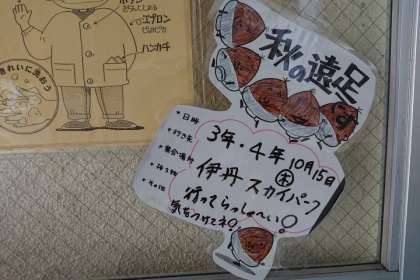 エプロン
ハンカチ
きれいに洗おう
秋の遠足
・日時
・行き先
・集合場所
・持ち物
・その他
3年・4年 10月15日
㊍
伊丹スカイパーク
行ってらっしゃ〜い○
気をつけてネ○